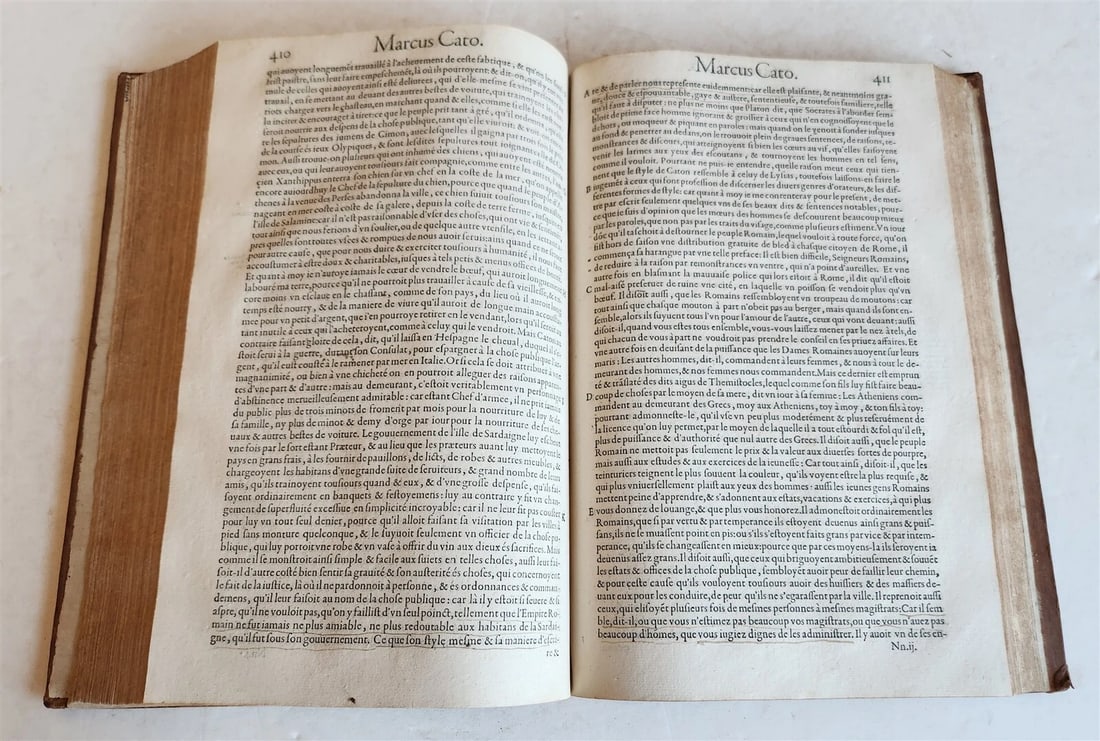 410
Marcus Cato.
qui auoyent longuemét trauaillé à l'acheuement de ceste fabrique, & qu'on les
laissast paistre, sans leur faire empeschemét, là où ils pourroyent: & dit-on, qu'vne
mule de celles qui auoyent ainsi esté deliurees, qui d'elle-mesme se vint presenter au
trauail, en se mettant au deuant des autres bestes de voiture, qui trainoyent les cha-
riots chargez vers le chasteau, en marchant quand & elles, comme si elle les eust voulu
inciter & encourager à tirer: ce que le peuple prit tant à gré, qu'il ordonna, qu'elle
seroit nourrie aux despens de la chose publique, tant qu'elle viuroit. & voit-on enco-
re les sepultures des iumens de Cimon, auec lesquelles il gaigna par trois fois le prix
de la course és ieux Olypiques, & sont lesdites sepultures tout ioignant celle de Ci-
mon. Aussi trouue-on plusieurs qui ont inhumé des chiens, qui auoyent esté nourris
auec eux, ou qui leur auoyent tousiours fait compagnie, comme entre les autres, l'an-
cien Xanthippus enterra son chien sur vn chef en la coste de la mer, qu'on appelle
encore auiourdhuy le Chef de la sepulture du chien, pource que quand le peuple d'A-
thenes à la venue des Perses abandonna la ville, ce chien suiuit tousiours son maistre,
nageant en mer coste à coste de sa galere, depuis la coste de terre ferme, iusques en
l'isle de Salamine: car il n'est pas raisonnable d'vser des choses, qui ont vie & sentiment,
tout ainsi que nous ferions d'vn soulier, ou de quelque autre vtensile, en les iettant a-
pres quelles sont toutes vsees & rompues de nous auoir serui: ains quand ce ne seroit
pour autre cause, que pour nous duire & exerciter tousiours à humanité, il nous faut
accoustumer à estre doux & charitables, iusques à tels petis & menus offices de bonté.
Et quant à moy ie n'auroye iamais le cœur de vendre le bœuf, qui auroit longuement
labouré ma terre, pource qu'il ne pourroit plus trauailler à cause de sa vieillesse, & en-
core moins vn esclaue en le chassant, comme de son pays, du lieu où il auroit long
temps esté nourry, & de la maniere de viure qu'il auroit de longue main accoustu-
mee pour vn petit d'argent, que i'en pourroye retirer en le vendant, lors qu'il seroit au-
tant inutile à ceux qui l'acheteroyent, comme à celuy, qui le vendroit. Mais Caton au
contraire faisant gloire de cela, dit, qu'il laissa en Hespagne le cheual, duquel il s'e-
stoit serui à la guerre, durant son Consulat, pour espargner à la chose publique l'ar-
gent, qu'il eust cousté à le ramener par mer en Italie. Or si cela se doit attribuer à vne
magnanimité, ou bien à vne chicheté on en pourroit alleguer des raisons apparen-
tes d'vne part & d'autre: mais au demeurant, c'estoit veritablement vn personnage
d'abstinence merueilleusement admirable: car estant Chef d'armee, il ne prit iamais
du public plus de trois minots de froment par mois pour la nourriture de luy & de
sa famille, ny plus de minot & demy d'orge par iour pour la nourriture de ses che-
uaux & autres bestes de voiture. Le gouuernement de l'isle de Sardaigne luy escheut
vne fois par le sort estant Præteur, & au lieu que les præteurs auant luy mettoyent le
pays en grans frais, à les fournir de pauillons, de licts, de robes & autres meubles, &
chargeoyent les habitans d'vne grande suite de seruiteurs, & grand nombre de leurs
amis, qu'ils trainoyent tousiours quand & eux, & d'vne grosse despense, qu'ils fai-
soyent ordinairement en banquets & festoyemens: luy au contraire y fit vn chan-
gement de superfluité excessiue en simplicité incroyable: car il ne leur fit pas couster
pour luy vn tout seul denier, pource qu'il alloit faisant sa visitation par les villes à
pied sans monture quelconque, & le suyuoit seulement vn officier de la chose pu-
blique, qui luy portoit vne robe & vn vase à offrir du vin aux dieux és sacrifices. Mais
comme il se monstroit ainsi simple & facile aux suiets en telles choses, aussi leur fai-
soit-il d'autre costé bien sentir sa grauité & son austerité és choses, qui concernoyent
le fait de la iustice, là où il ne pardonnoit à personne, & és ordonnances & comman-
demens, qu'il leur faisoit au nom de la chose publique: car là il y estoit si seuere & si
aspre, qu'il ne vouloit pas, qu'on y faillist d'vn seul poinct, tellement que l'Empire Ro-
main ne fut iamais ne plus amiable, ne plus redoutable aux habitans de la Sardai-
gne, qu'il fut sous son gouuernement. Ce que son style mesme & sa maniere d'escri-
re &
Marcus Cato.
411
A re & de parler nous represente euidemment: car elle est plaisante, & neantmoins gra-
ue, douce & espouuantable, gaye & austere, sententieuse, & toutesfois familiere, telle
qu'il faut à disputer: ne plus ne moins que Platon dit, que Socrates à l'aborder sem-
bloit de prime face homme ignorant & grossier à ceux qui n'en cognoissoyent que le
dehors, ou moqueur & piquant en paroles: mais quand on le venoit à sonder iusques
au fond & penetrer au dedans, on le trouuoit plein de graues sentences, de raisons, re-
monstrances & discours, qui atteignoyent si bien les cœurs au vif, qu'elles faisoyent
venir les larmes aux yeux des escoutans, & tournoyent les hommes en tel sens,
comme il vouloit. Pourtant ne puis-ie entendre, quelle raison meut ceux qui tien-
nent que le style de Caton ressemble à celuy de Lysias, toutefois laissons-en faire le
B iugemét à ceux qui font profession de discerner les diuers genres d'orateurs, & les dif-
ferentes formes de style: car quant à moy ie me contenteray pour le present, de met-
tre par escrit seulement quelques vns de ses beaux dits & sentences notables, pour-
ce que ie suis d'opinion que les mœurs des hommes se descouurent beaucoup mieux
par les paroles, que non pas par les traits du visage, comme plusieurs estiment. Vn iour
dóc qu'il taschoit à destourner le peuple Romain, lequel vouloit à toute force, qu'on
fist hors de saison vne distribution gratuite de bled à chasque citoyen de Rome, il
commença sa harangue par vne telle preface: Il est bien difficile, Seigneurs Romains,
de reduire à la raison par remonstrances vn ventre, qui n'a point d'aureilles. Et vne
autre fois en blasmant la mauuaise police qui lors estoit à Rome, il dit qu'il estoit
C mal-aisé preseruer de ruine vne cité, en laquelle vn poisson se vendoit plus qu'vn
bœuf. Il disoit aussi, que les Romains ressembloyent vn troupeau de moutons: car
tout ainsi que chasque mouton à part n'obeit pas au berger, mais quand ils sont en-
semble, alors ils suyuent tous l'vn pour l'amour de l'autre, ceux qui vont deuant: aussi
disoit-il, quand vous estes tous ensemble, vous-vous laissez mener par le nez à tels, de
qui chacun de vous à part ne voudroit pas prendre le conseil en ses priuez affaires. Et
vne autre fois en deuisant de la puissance que les Dames Romaines auoyent sur leurs
maris: Les autres hommes, dit-il, commandent à leurs femmes, & nous à tout le de-
meurant des hommes, & nos femmes nous commandent. Mais ce dernier est emprun
té & trãslaté des dits aigus de Themistocles, lequel comme son fils luy fist faire beau-
D coup de choses par le moyen de sa mere, dit vn iour à sa femme: Les Atheniens com-
mandent au demeurant des Grecs, moy aux Atheniens, toy à moy, & ton fils à toy:
pourtant admonneste-le, qu'il vse vn peu plus moderément & plus reseruément de
la licence qu'on luy permet, par le moyen de laquelle il a tout estourdi & fol qu'il est,
plus de puissance & d'authorité que nul autre des Grecs. Il disoit aussi, que le peuple
Romain ne mettoit pas seulement le prix & la valeur aux diuerses sortes de pourpre,
mais aussi aux estudes & aux exercices de la ieunesse: Car tout ainsi, disoit-il, que les
teinturiers teignent le plus souuent la couleur, qu'ils voyent estre la plus requise, &
qui plus vniuersellement plaist aux yeux des hommes: aussi les ieunes gens Romains
mettent peine d'apprendre, & s'adonnent aux estats, vacations & exercices, à qui plus
E vous donnez de louange, & que plus vous honorez. Il admonestoit ordinairement les
Romains, que si par vertu & par temperance ils estoyent deuenus ainsi grans & puis-
sans, ils ne se muassent point en pis: ou s'ils s'estoyent faits grans par vice & par intem-
perance, qu'ils se changeassent en mieux: pource que par ces moyens-là ils seroyent ia
deuenus assez grans. Il disoit aussi, que ceux qui briguoyent ambitieusement & souuét
les estats & offices de la chose publique, sembloyét auoir peur de faillir leur chemin,
& pour ceste cause qu'ils vouloyent tousiours auoir des huissiers & des massiers de-
uant eux pour les conduire, de peur qu'ils ne s'egarassent par la ville. Il reprenoit aussi
ceux, qui elisoyét plusieurs fois de mesmes personnes à mesmes magistrats: Car il sem
ble, dit-il, ou que vous n'estimez pas beaucoup vos magistrats, ou que vous n'auez pas
beaucoup d'hómes, que vous iugiez dignes de les administrer. Il y auoit vn de ses en-
Nn.ij.